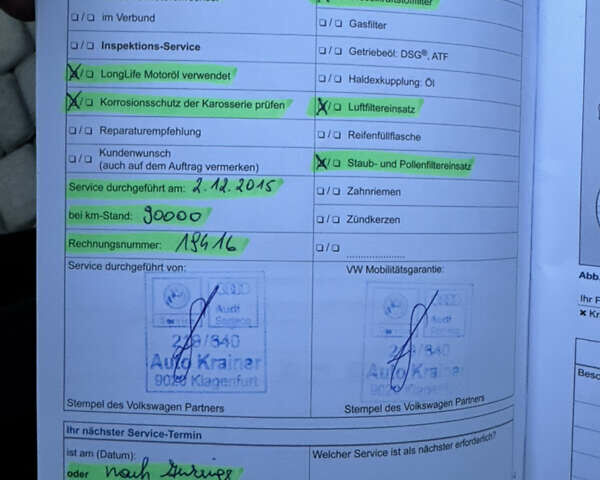 ❏/❏ im Verbund
❏/❏ Gasfilter
❏/❏ Inspektions-Service
❏/❏ Getriebeöl: DSG®, ATF
X/❏ LongLife Motoröl verwendet
❏/❏ Haldexkupplung: Öl
X/❏ Korrosionsschutz der Karosserie prüfen
X/❏ Luftfiltereinsatz
❏/❏ Reparaturempfehlung
❏/❏ Reifenfüllflasche
❏/❏ Kundenwunsch
(auch auf dem Auftrag vermerken)
X/❏ Staub- und Pollenfiltereinsatz
Service durchgeführt am: 2.12.2015
❏/❏ Zahnriemen
bei km-Stand: 90000
❏/❏ Zündkerzen
Rechnungsnummer: 19416
❏/❏ ....................
Service durchgeführt von:
VW Mobilitätsgarantie:
Audi
Service
Audi
219/640
Auto Krainer
9020 Klagenfurt
219/640
Auto Krainer
9020 Klagenfurt
Stempel des Volkswagen Partners
Stempel des Volkswagen Partners
Ihr nächster Service-Termin
ist am (Datum):
Welcher Service ist als nächster erforderlich?
oder nach
Abb.
Ihr F
x Kr
Besc